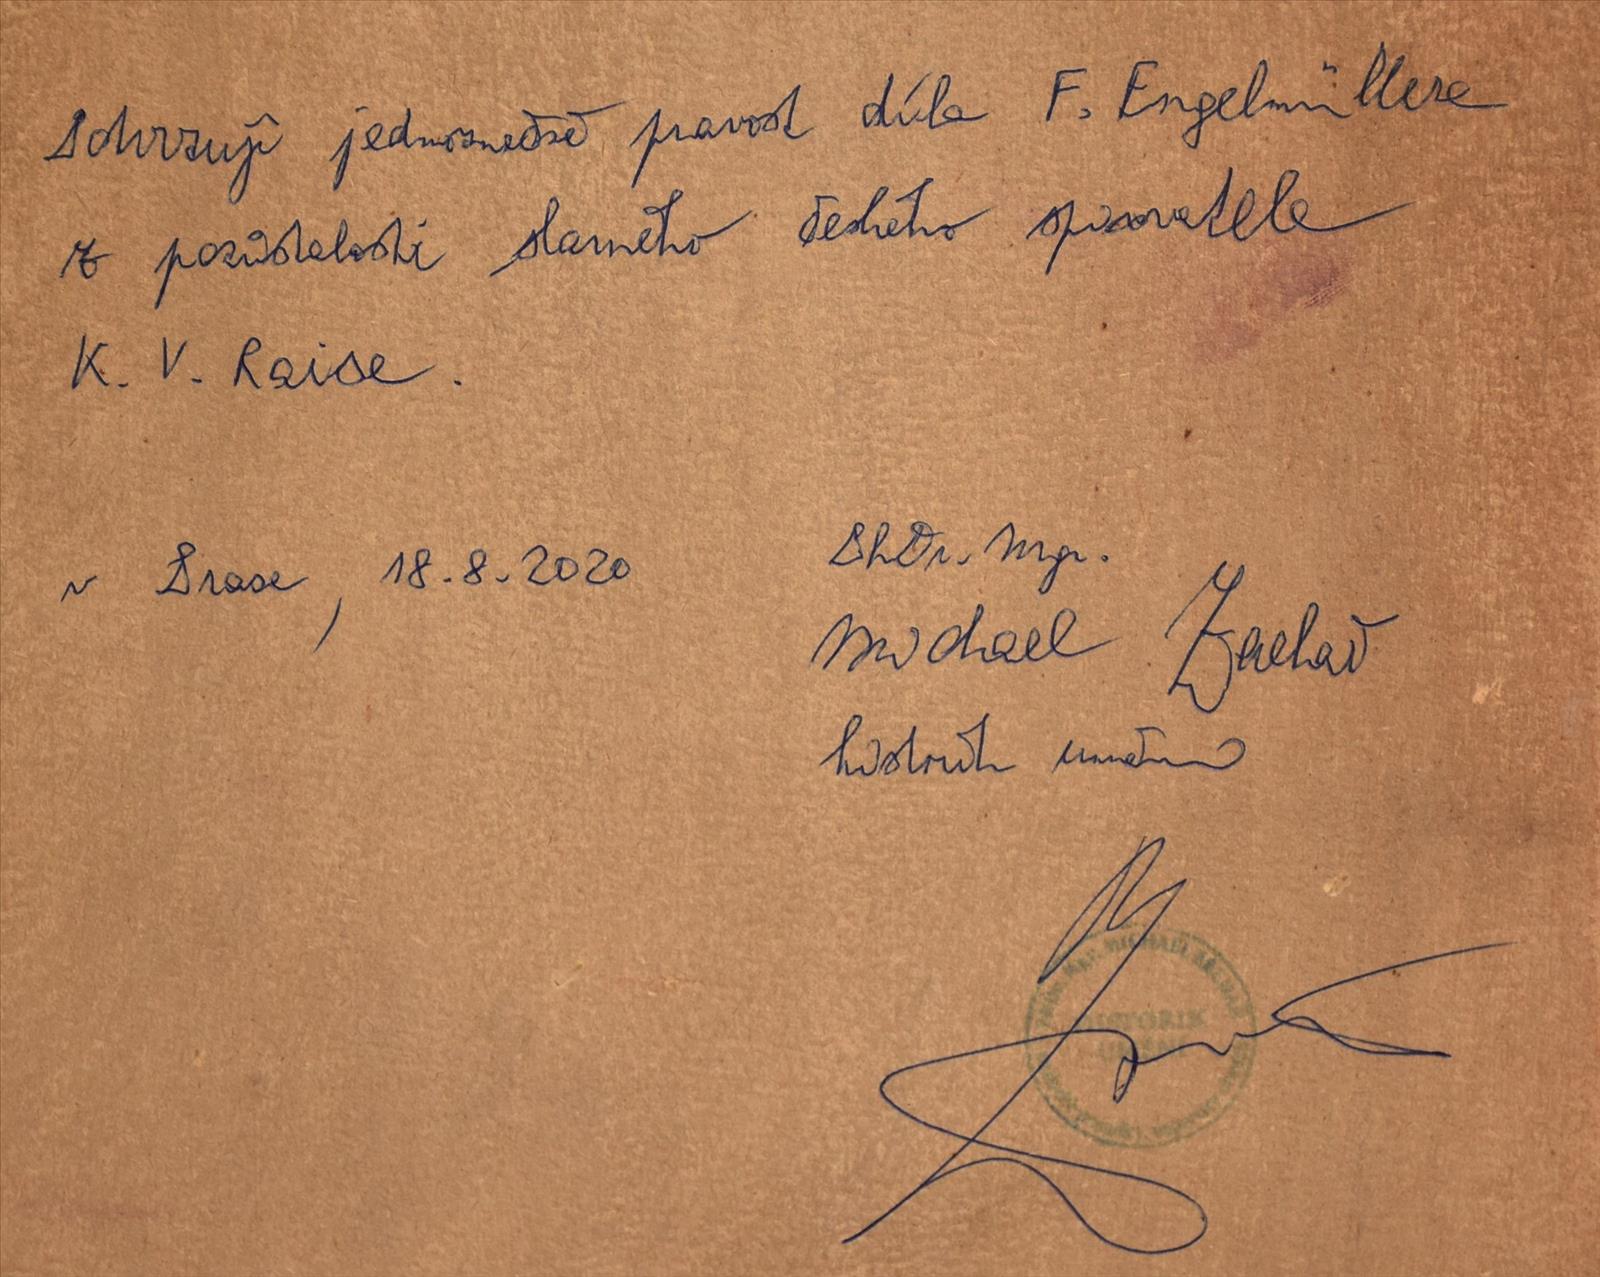 Potvrzuji jednoznačně pravost díla F. Engelmüllera
z pozůstalosti slavného českého spisovatele
K. V. Raise.
v Praze, 18.8.2020
PhDr. Mgr.
Michael Zachař
historik umění
MICHAEL ZACHAŘ
HISTORIK
UMĚNÍ